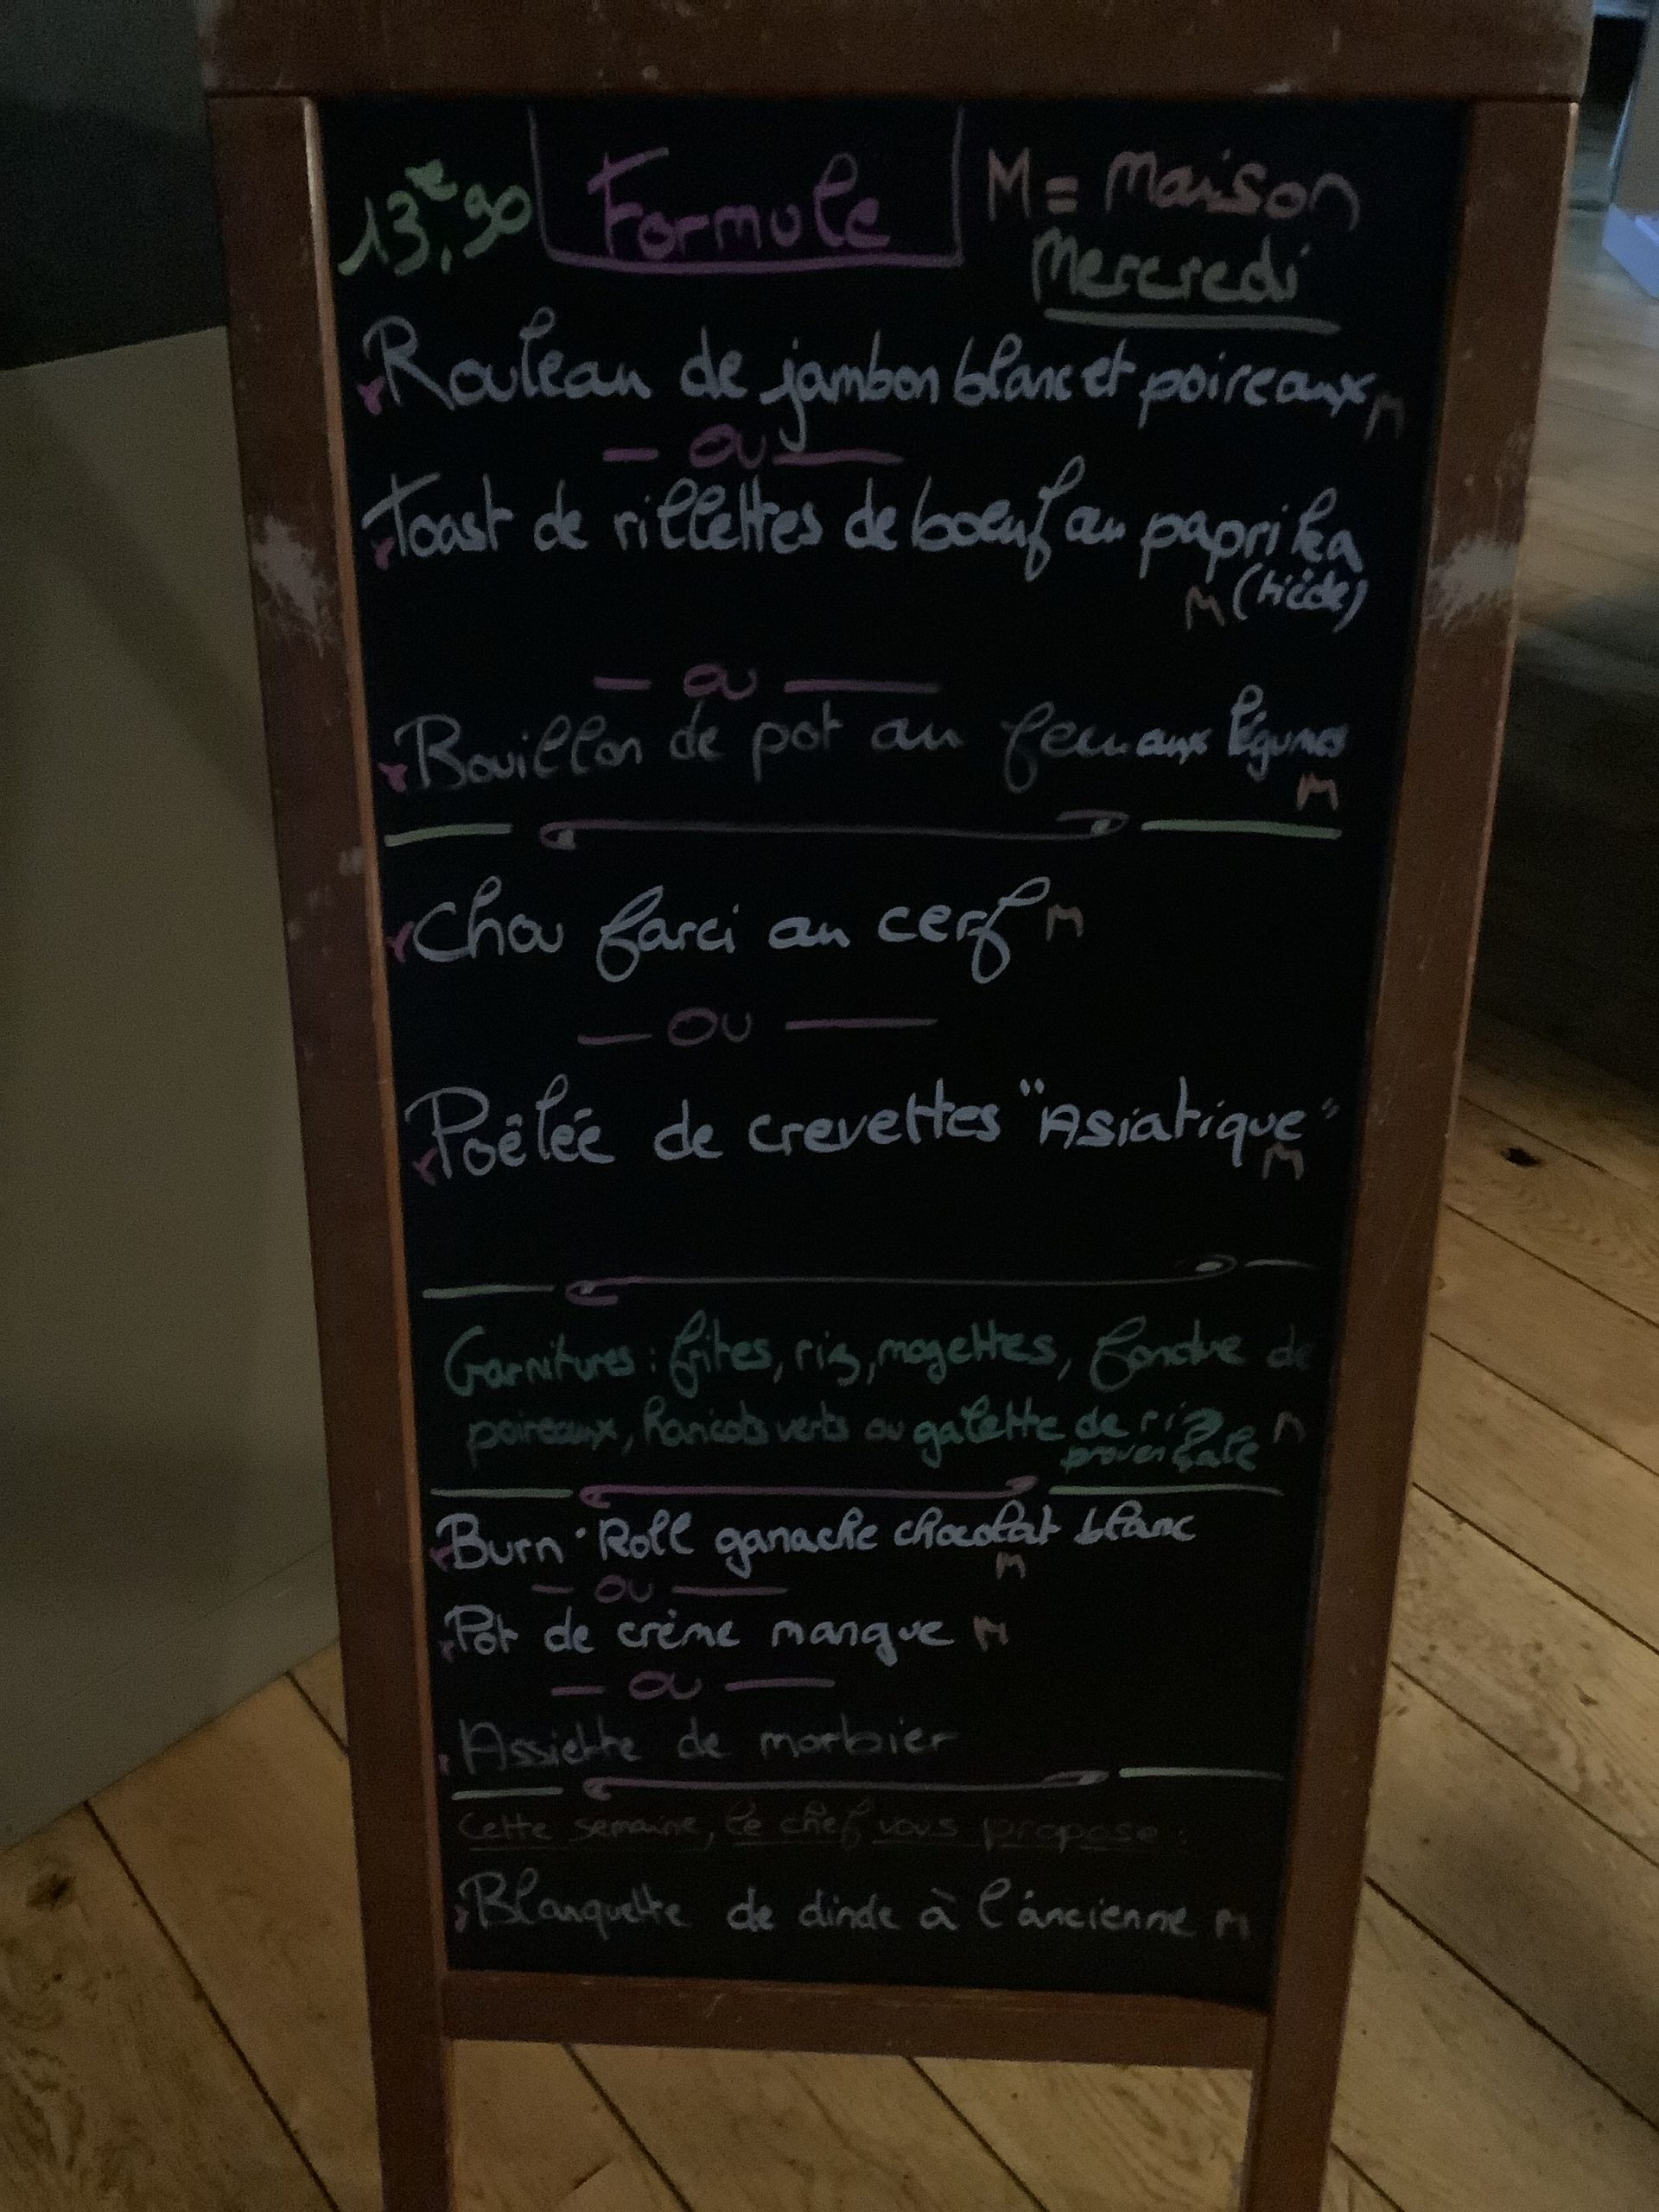 13,€90 Formule M = Maison
Mercredi
Rouleau de jambon blanc et poireaux M
— ou —
Toast de rillettes de boeuf au paprika
M (tiède)
— ou —
Bouillon de pot au feu aux légumes
M
Chou farci au cerf M
— ou —
Poêlée de crevettes "Asiatique"
M
Garnitures : frites, riz, mogettes, fondue de
poireaux, haricots verts ou galette de riz M
provençale
Burn·Roll ganache chocolat blanc
M
— ou —
Pot de crème mangue M
— ou —
Assiette de morbier
Cette semaine, le chef vous propose :
Blanquette de dinde à l'ancienne M